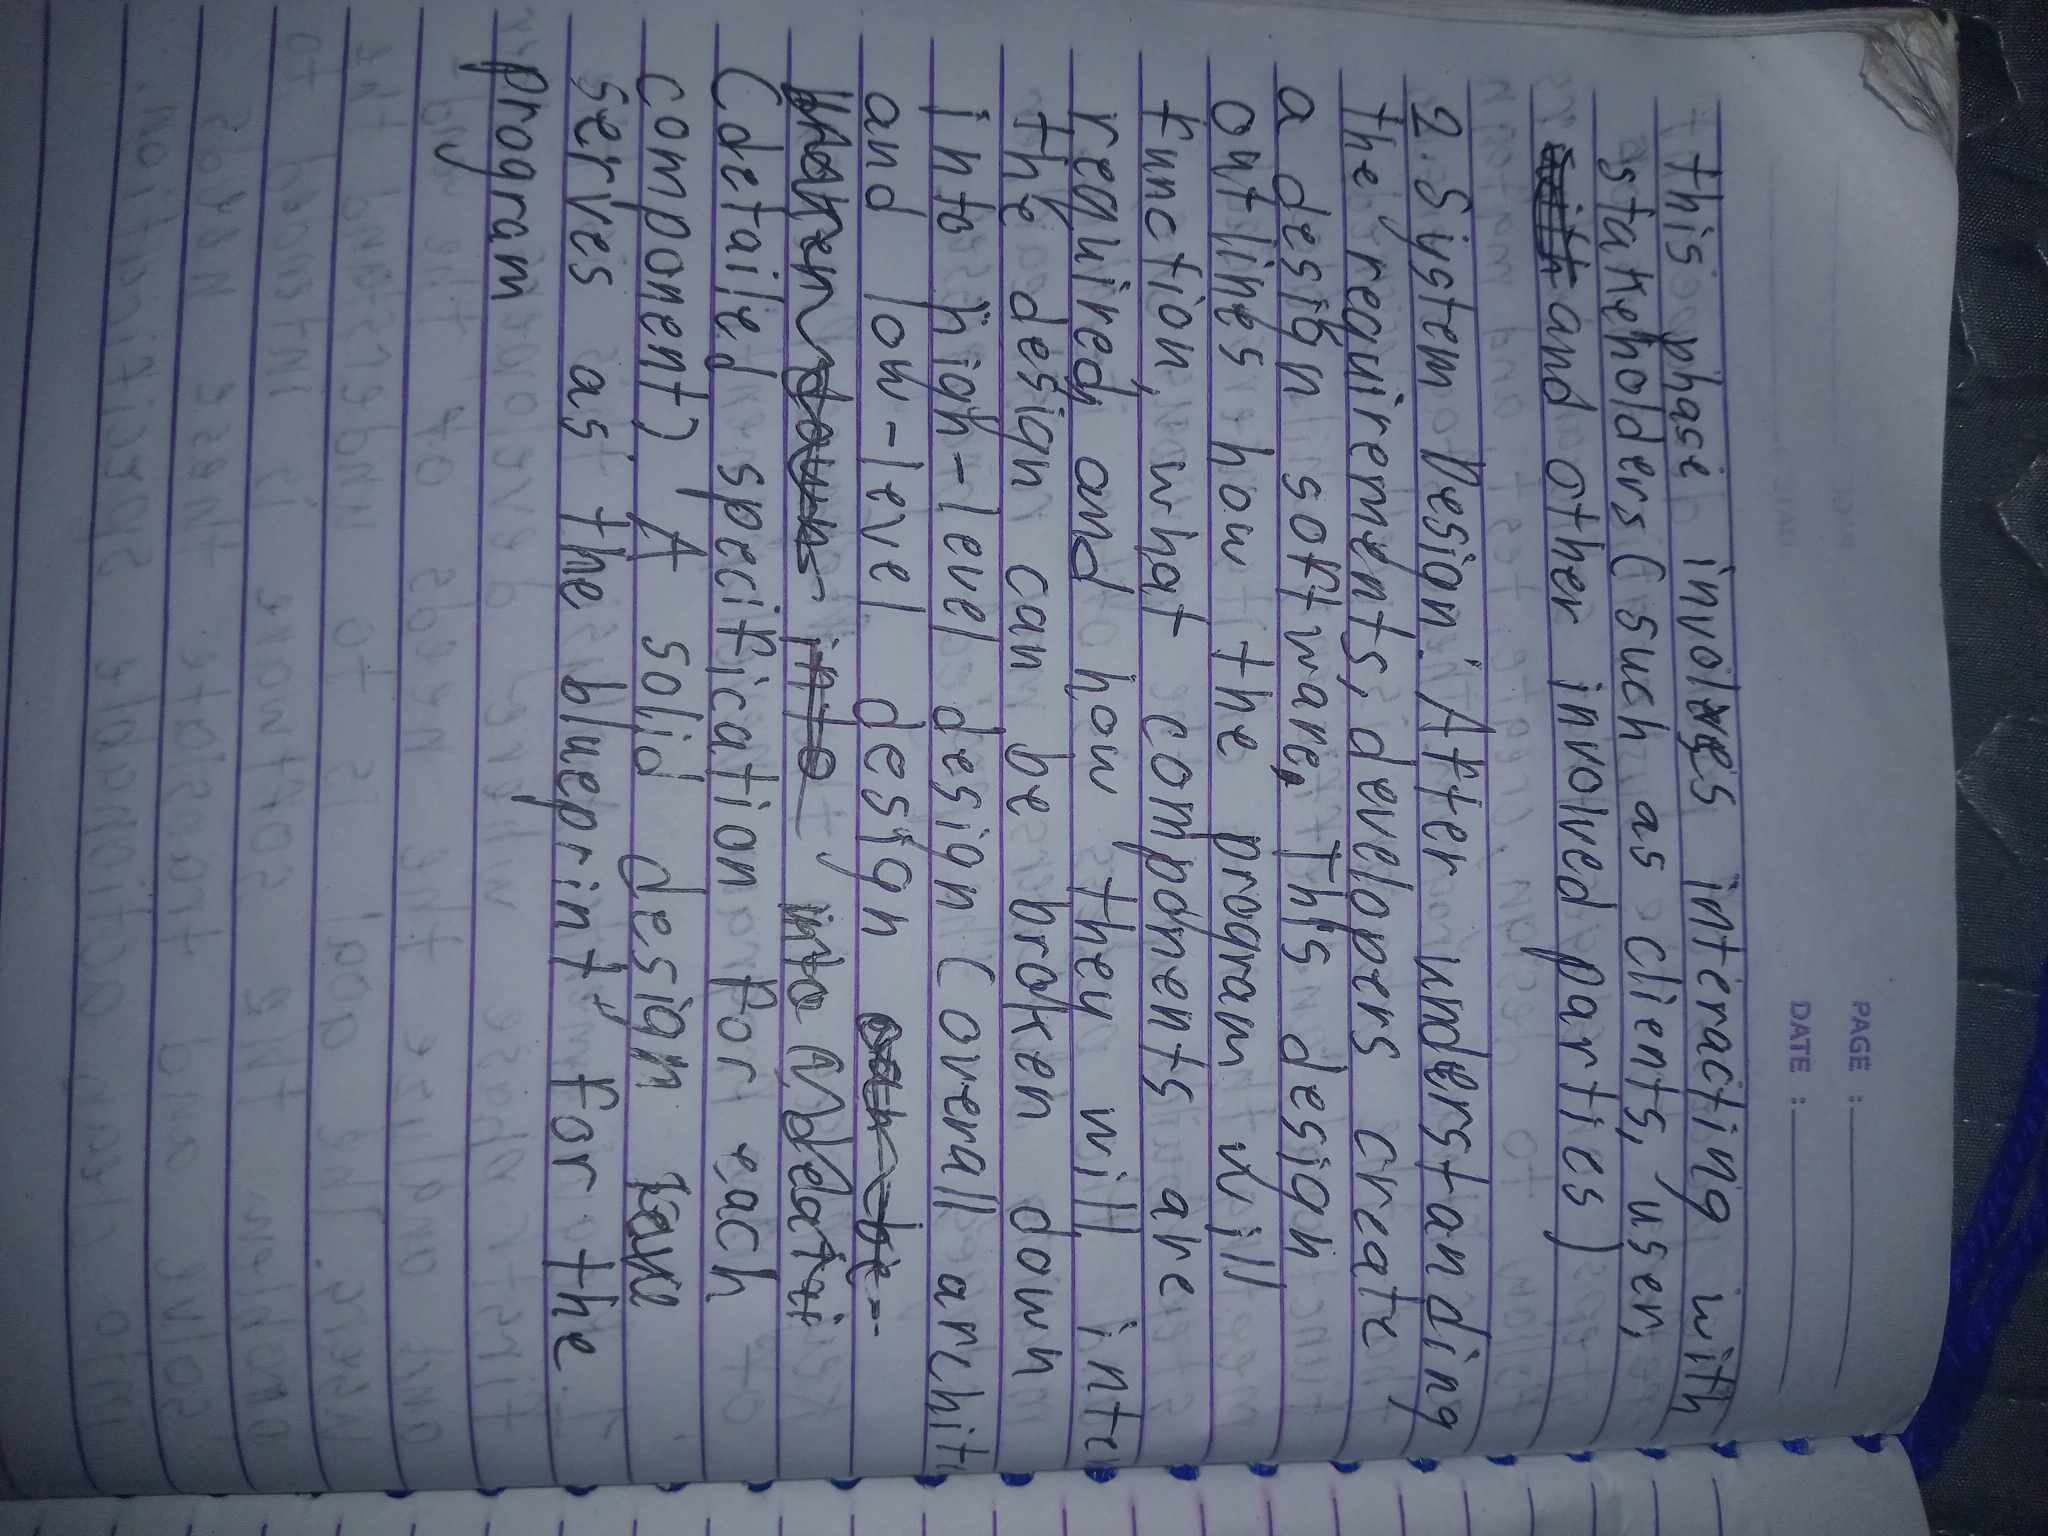 PAGE :
DATE :
this phase involves interacting with
stakeholders (such as clients, user,
and other involved parties)
2. System Design: After understanding
the requirements, developers create
a design software, This design
outlines how the program will
function, what components are
required, and how they will inte
the design can be broken down
into high-level design (overall archit
and low-level design
into
(detailed specification for each
component) A solid design
serves as "the blueprint" for the
program